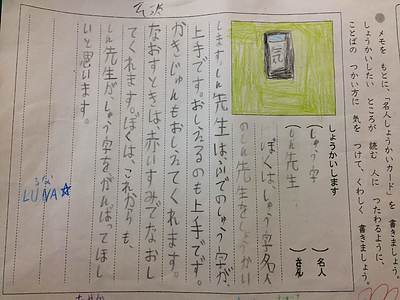 メモを もとに、「名人しょうかいカード」を 書きましょう。
しょうかいしたい ところが 読む 人に つたわるように、
ことばの つかい方に 気を つけて、くわしく 書きましょう。
しょうかいします
(しゅう字) 名人
(しん先生) さん
ぼくは、しゅう字名人
のしん先生をしょうかい
します。しん先生は、ふでのしゅう字が、
上手です。おしえるのも上手です。
かきじゅんもおしえてくれます。
なおすときは、赤いすみでなおし
てくれます。ぼくは、これからも、
しん先生が、しゅう字をがんばってほし
いと思います。
るな
LUNA☆